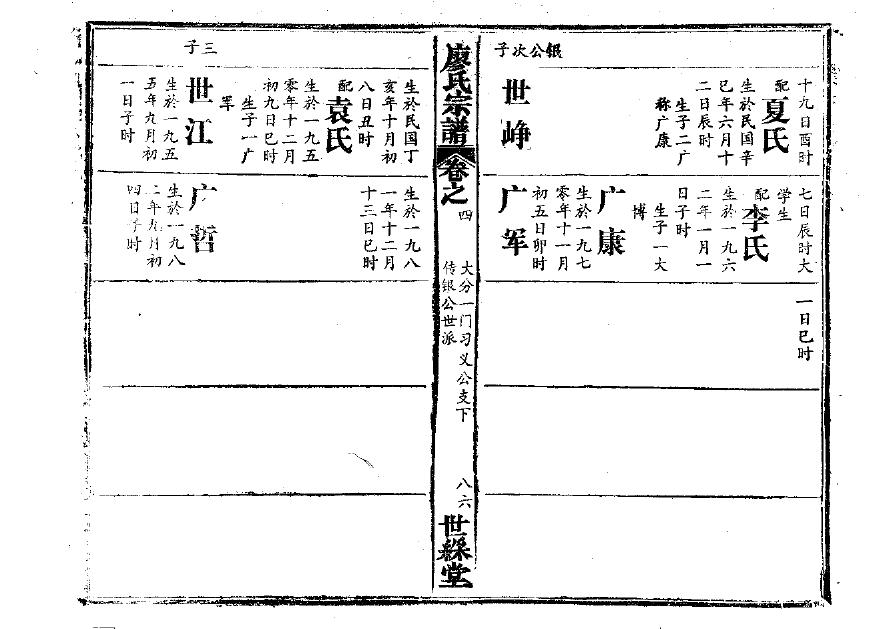 银公次子
十九日酉时
配
夏氏
生於民国辛
巳年六月十
二日辰时
生子二广
称广康
世峥
七日辰时大
学生
配
李氏
生於一九六
二年一月一
日子时
生子一大
博
广康
生於一九七
零年十一月
初五日卯时
广军
一日巳时
廖氏宗譜
卷之四
大分一门习义公支下
传银公世派
八六
世綵堂
三子
生於民国丁
亥年十月初
八日丑时
配
袁氏
生於一九五
零年十二月
初九日巳时
生子一广
世江
生於一九五
五年九月初
一日子时
生於一九八
一年十二月
十三日巳时
广哲
生於一九八
二年九月初
四日子时